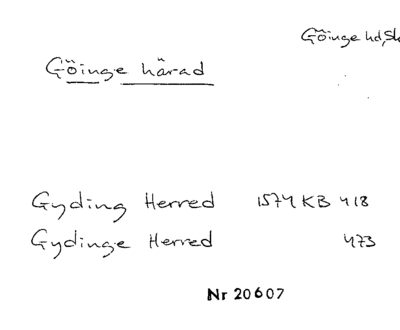 Göinge hd, Sk
Göinge härad
Gyding Herred 1574 KB 418
Gydinge Herred 473
Nr 20607